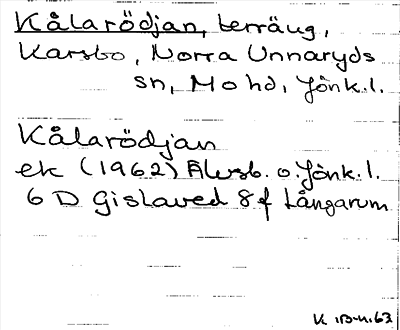 Kålarödjan, terräng,
Karsbo, Norra Unnaryds
sn, Mo hd, Jönk.l.
Kålarödjan
ek (1962) Älvsb. o. Jönk.l.
6 D Gislaved 8 f Långarum